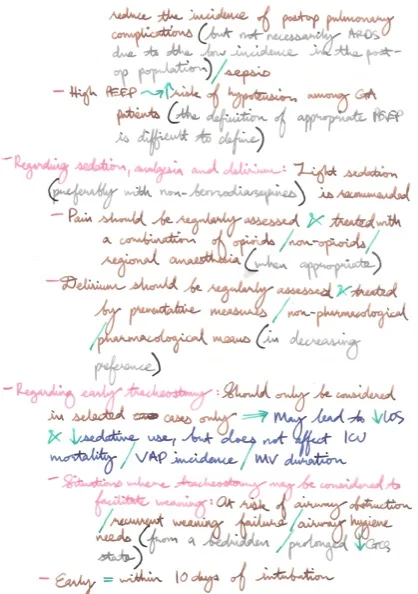 reduce the incidence of postop pulmonary
complications (but not necessarily ARDS
due to the low incidence in the post-
op population) / sepsis
- High PEEP ⇝ ↑ risk of hypotension among GA
patients (the definition of appropriate PEEP
is difficult to define)
- Regarding sedation, analgesia and delirium: Light sedation
(preferably with non-benzodiazepines) is recommended
- Pain should be regularly assessed & treated with
a combination of opioids / non-opioids /
regional anaesthesia (when appropriate)
- Delirium should be regularly assessed & treated
by preventative measures / non-pharmacological
/ pharmacological means (in decreasing
preference)
- Regarding early tracheostomy: Should only be considered
in selected cases only ⇒ May lead to ↓LOS
& ↓sedative use, but does not affect ICU
mortality / VAP incidence / MV duration
- Situations where tracheostomy may be considered to
facilitate weaning: At risk of airway obstruction
/ recurrent weaning failure / airway hygiene
needs (from a bedridden / prolonged ↓GCS
state)
- Early = within 10 days of intubation